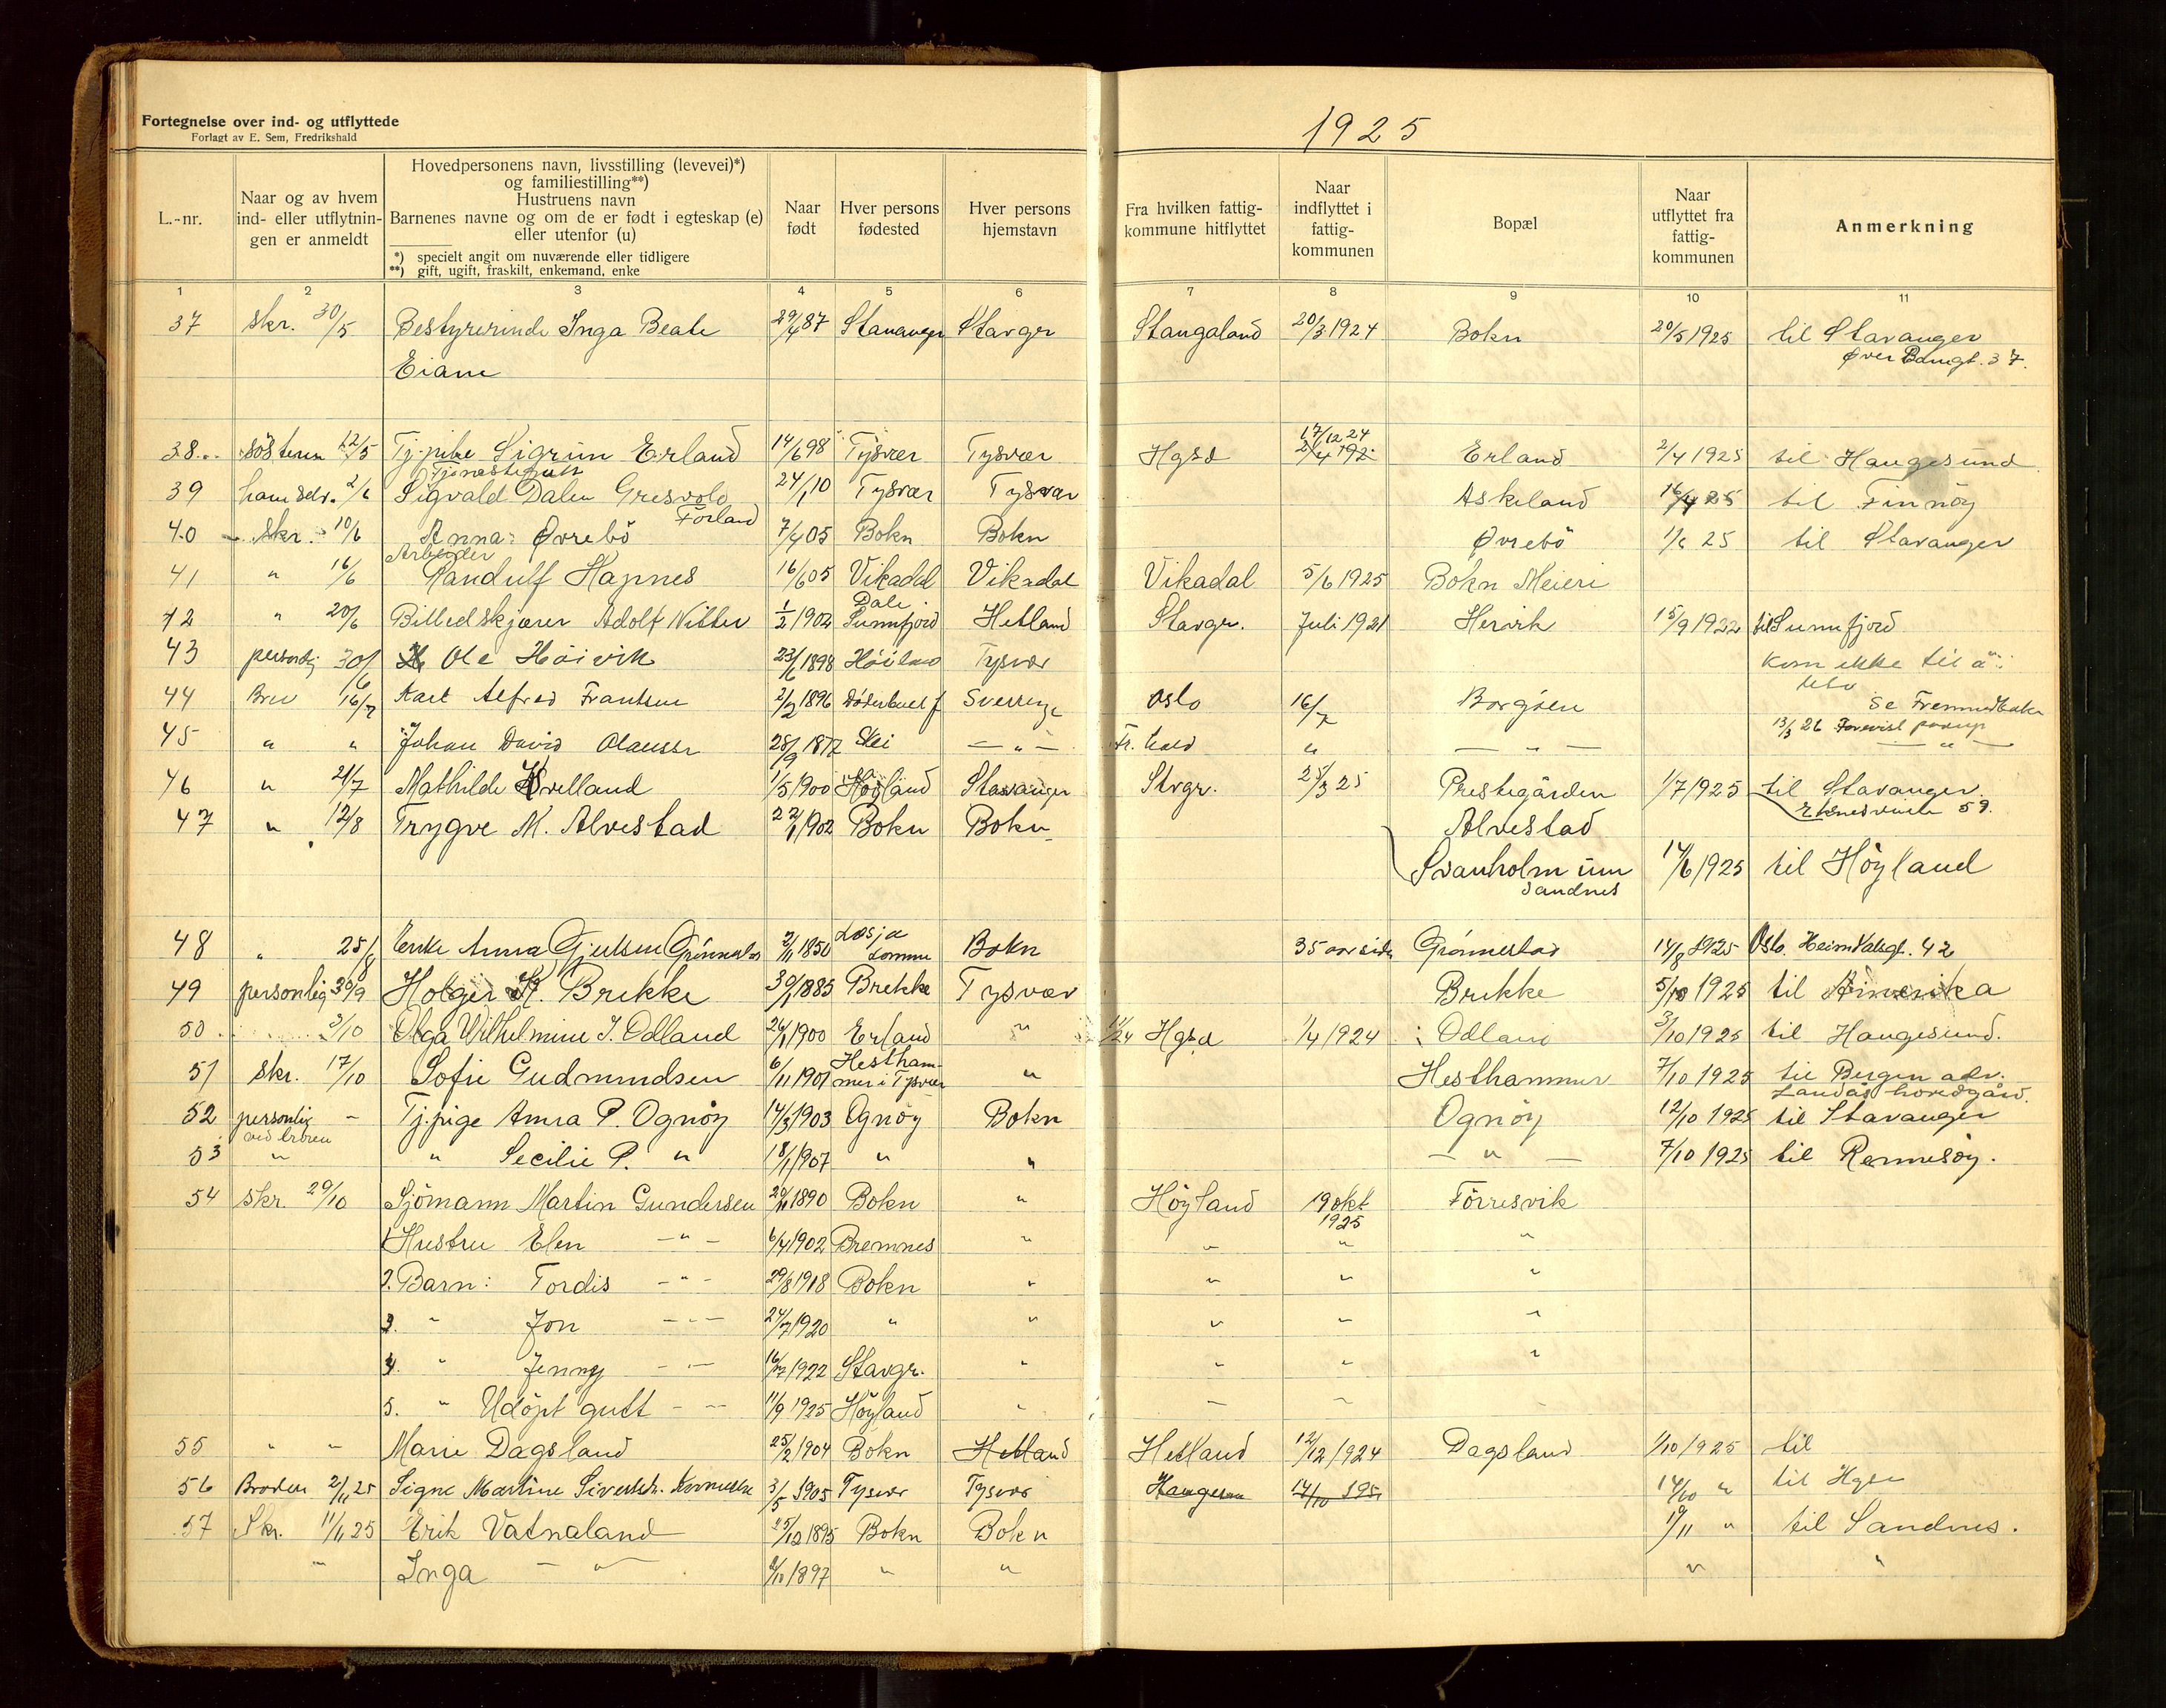 Fortegnelse over ind- og utflyttede
Forlagt av E. Sem, Fredrikshald
1925
L.-nr.
Naar og av hvem ind- eller utflytnin- gen er anmeldt
Hovedpersonens navn, livsstilling (levevei)*)
og familiestilling**)
Hustruens navn
Barnenes navne og om de er født i egteskap (e)
eller utenfor (u)
*) specielt angit om nuværende eller tidligere
**) gift, ugift, fraskilt, enkemand, enke
Naar født
Hver persons fødested
Hver persons hjemstavn
Fra hvilken fattig- kommune hitflyttet
Naar indflyttet i fattig- kommunen
Bopæl
Naar utflyttet fra fattig- kommunen
Anmerkning
1 2 3 4 5 6 7 8 9 10 11
37 Skr. 30/5 Bestyrerinde Inga Beate 29/4 87 Stavanger Stavger Stangaland 20/3 1924 Bokn 20/5 1925 til Stavanger
Eiane Øvre Bangt. 37.
17/12 24
38 søsteren 12/5 Tj.pike Sigrun Erland 14/6 98 Tysvær Tysvær Hgsd 2/4 192 Erland 2/4 1925 til Haugesund
Tjenestegutt
39 ham selv. 2/6 Sigvald Dalen Gresvold 24/1 10 Tysvær Tysvær Askeland 16/4 25 til Finnøy
Förland
40 Skr. 10/6 Anna Øvrebö 7/4 05 Bokn Bokn Øvrebö 1/6 25 til Stavanger
Arbeider
41 " 16/6 Randulf Hapnes 16/6 05 Vikadal Vikadal Vikadal 5/6 1925 Bokn Meieri
Dale
42 " 20/6 Billedskjærer Adolf Nitter 1/2 1902 Sunnfjord Hetland Stavgr. Juli 1921 Hervik 15/9 1922 til Sunnfjord
43 personlig 30/6 Ole Höivik 23/6 1898 Höiland Tysvær kom ikke til å
44 Brev 16/7 Karl Alfred Frantsen 2/2 1896 Sverrige Oslo 16/7 Borgöen Se Fremmedboken
13/3 26 Forevist
45 " " Johan David Olaussen 28/9 1877 Skei — " — Fr. hald " — " — — " —
46 " 21/7 Mathilde Kvelland 1/5 1900 Höyland Stavanger Stvgr. 25/3 25 Prestegården 1/7 1925 til Stavanger.
59.
47 " 12/8 Trygve M. Alvestad 22/1 1902 Bokn Bokn Alvestad
Svanholm um 14/6 1925 til Höyland
Sandnes
48 " 25/8 Enke Anna Gjertsen Grönnestad 2/11 1850 Losja Bokn 35 aar siden Grönnestad 14/8 1925 Oslo. Heimdalsgt. 42
Lomme
49 personlig 30/9 Holger K. Brekke 30/1 1885 Brekke Tysvær Brekke 5/10 1925 til Amerika
50 3/10 Olga Wilhelmine J. Odland 26/1 1900 Erland " 1/4 24 Hgsd 1/4 1924 Odland 3/10 1925 til Haugesund.
51 Skr. 17/10 Sofie Gudmundsen 6/11 1901 Hestham- " Hesthammer 7/10 1925 til Bergen adr.
mer i Tysvær Landås hovedgård.
52 personlig — Tj.pige Anna P. Ognøy 14/3 1903 Ognøy Bokn Ognøy 12/10 1925 til Stavanger
ved broren
53 " " Secilie P. " 18/1 1907 " " — " — 7/10 1925 til Rennesöy.
54 Skr. 29/10 Sjömann Martin Gundersen 20/11 1890 Bokn " Höyland 19 okt Förresvik
1925
1 Hustru Elen — " — 6/4 1902 Bremnes " " " "
2. Barn: Tordis — " — 29/8 1918 Bokn " " " "
3. " Jon — " — 24/7 1920 " " " " "
4. " Jenny — " — 16/12 1922 Stavgr. " " " "
5. " Udöpt gutt — " — 11/9 1925 Höyland " " "
55 " " Marie Dagsland 25/2 1904 Bokn Hetland Hetland 12/12 1924 Dagsland 1/10 1925 til
56 Broder 2/11 25 Signe Martine Sivertsdr. 3/5 1905 Tysvær Tysvær Haugesun 14/10 195 14/10 " til
57 Skr. 11/11 25 Erik Vatnaland 25/12 1895 Bokn Bokn 19/11 " til Sandnes.
" Inga — " — 2/10 1897 " " " "